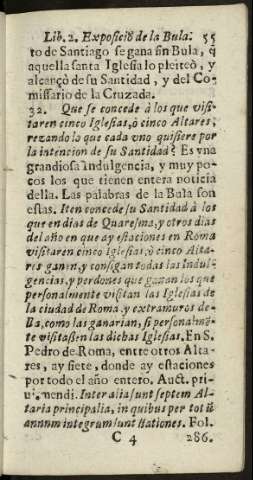 Lib. 2. Exposiciõ de la Bula. 55
to de Santiago se gana sin Bula, q̃
aquella santa Iglesia lo pleiteò, y
alcançò de su Santidad, y del Co-
missario de la Cruzada.
32. Que se concede à los que visi-
taren cinco Iglesias, ò cinco Altares,
rezando lo que cada vno quisiere por
la intencion de su Santidad? Es vna
grandiosa Indulgencia, y muy po-
cos los que tienen entera noticia
della. Las palabras de la Bula son
estas. Iten concede su Santidad à los
que en dias de Quaresma, y otros dias
del año en que ay estaciones en Roma
visitaren cinco Iglesias, ò cinco Alta-
res ganen, y consigan todas las Indul-
gencias, y perdones que ganan los que
personalmente visitan las Iglesias de
la ciudad de Roma, y extramuros de-
lla, como las ganarian, si personalmẽ-
te visitassen las dichas Iglesias. En S.
Pedro de Roma, entre otros Alta-
res, ay siete, donde ay estaciones
por todo el año entero. Auct. pri-
uil. mendi. Inter alia sunt septem Al-
taria principalia, in quibus per tot ũ
annum integrum sunt stationes. Fol.
C 4 286.